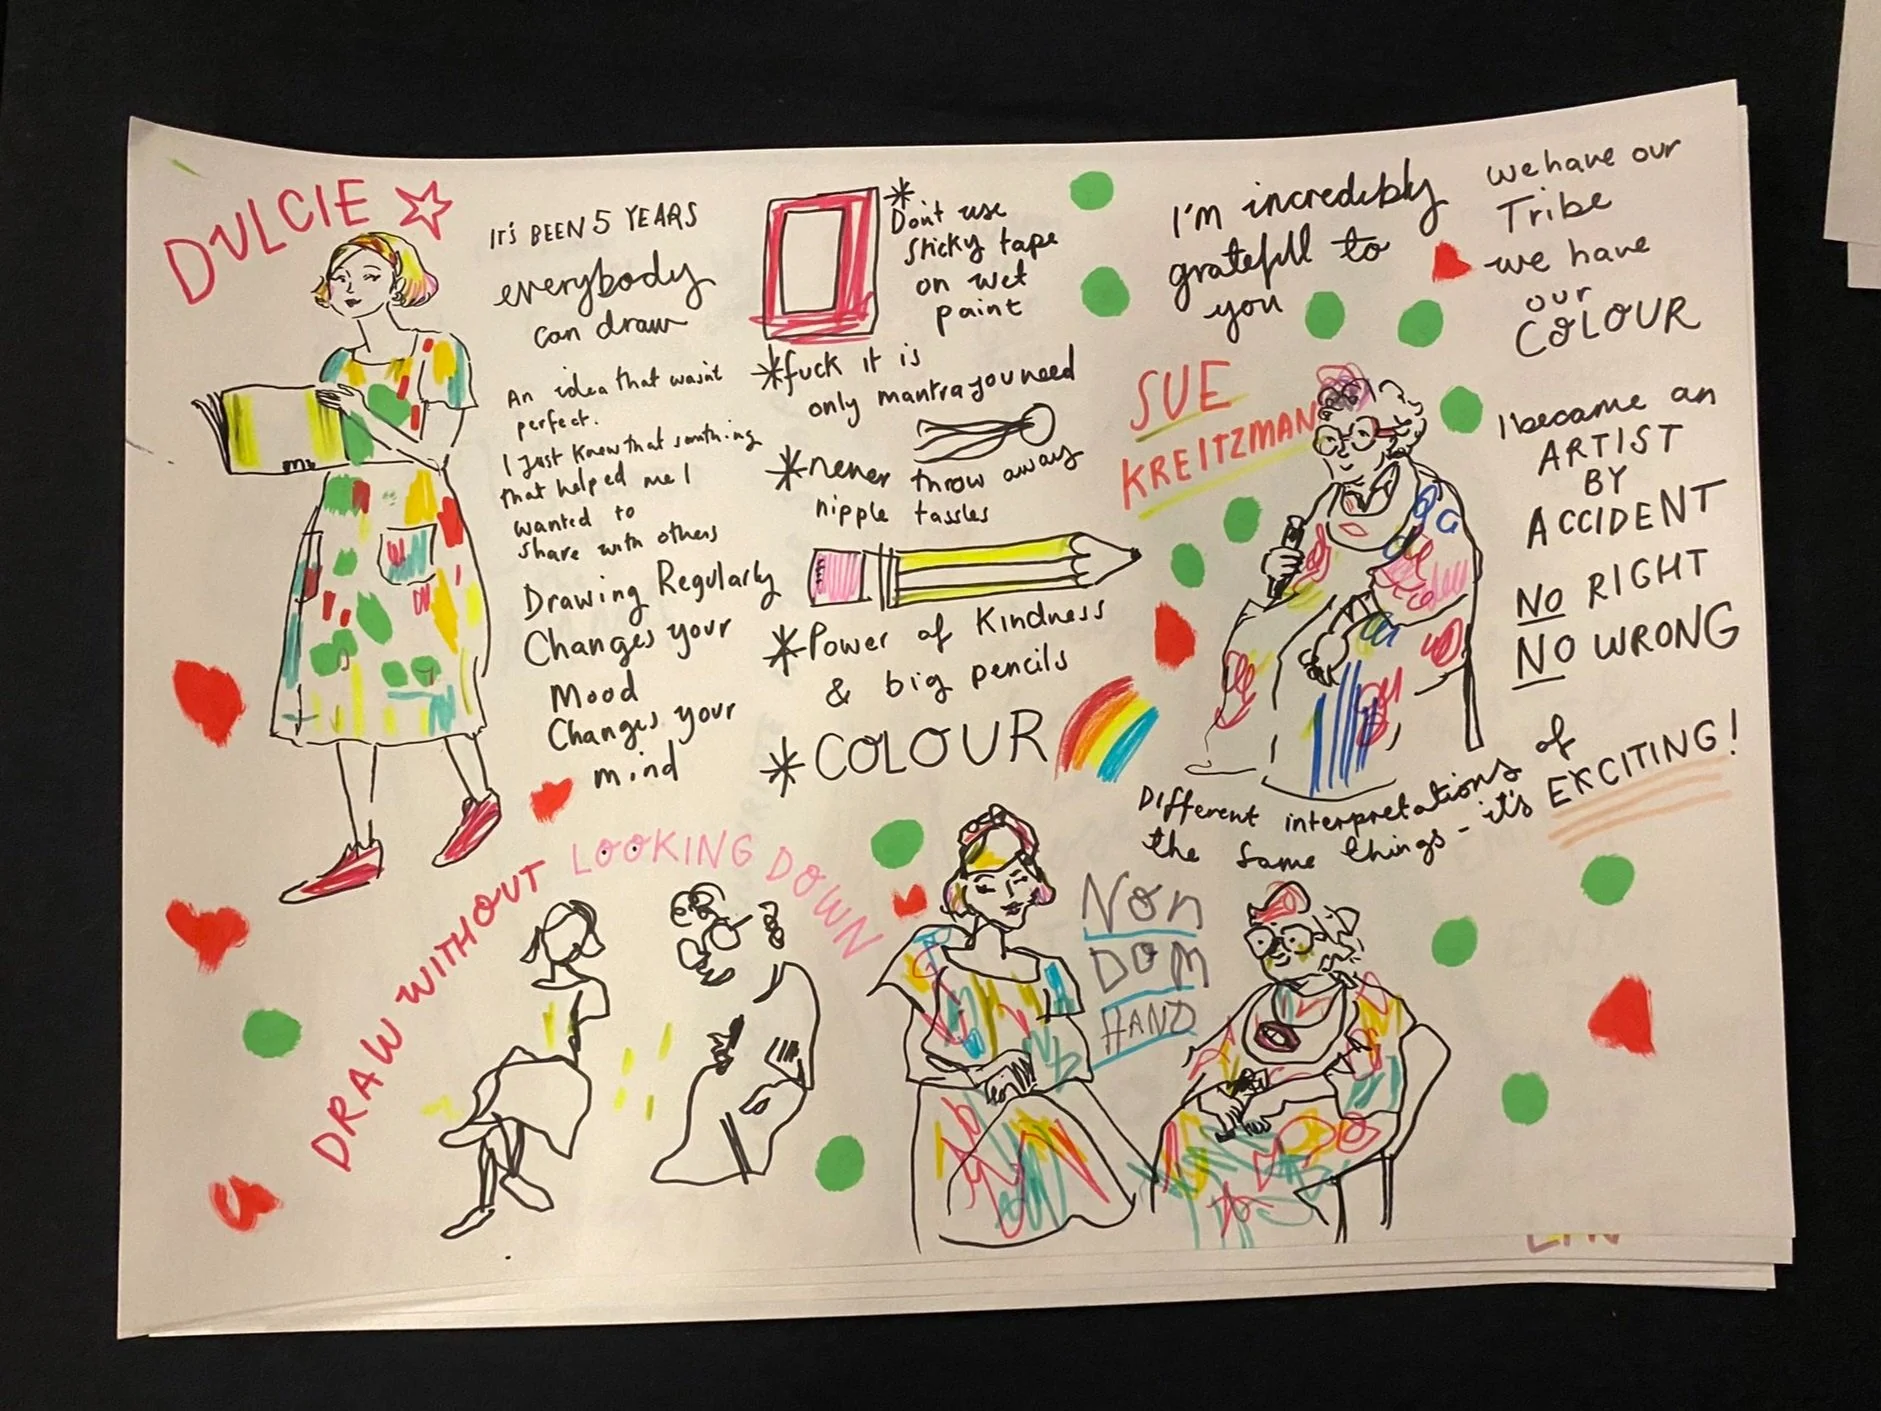 DULCIE
It's BEEN 5 YEARS
everybody
can draw
An idea that wasn't
perfect.
I just know that something
that helped me I
wanted to
share with others
Drawing Regularly
Changes your
Mood
Changes your
mind
* Don't use
sticky tape
on wet
paint
* fuck it is
only mantra you need
* never throw away
nipple tassles
* Power of Kindness
& big pencils
* COLOUR
I'm incredibly
grateful to
you
we have our
Tribe
we have
our
COLOUR
SUE
KREITZMAN
I became an
ARTIST
BY
ACCIDENT
NO RIGHT
NO WRONG
Different interpretations of
the same things - it's EXCITING!
DRAW WITHOUT LOOKING DOWN
Non
DOM
HAND